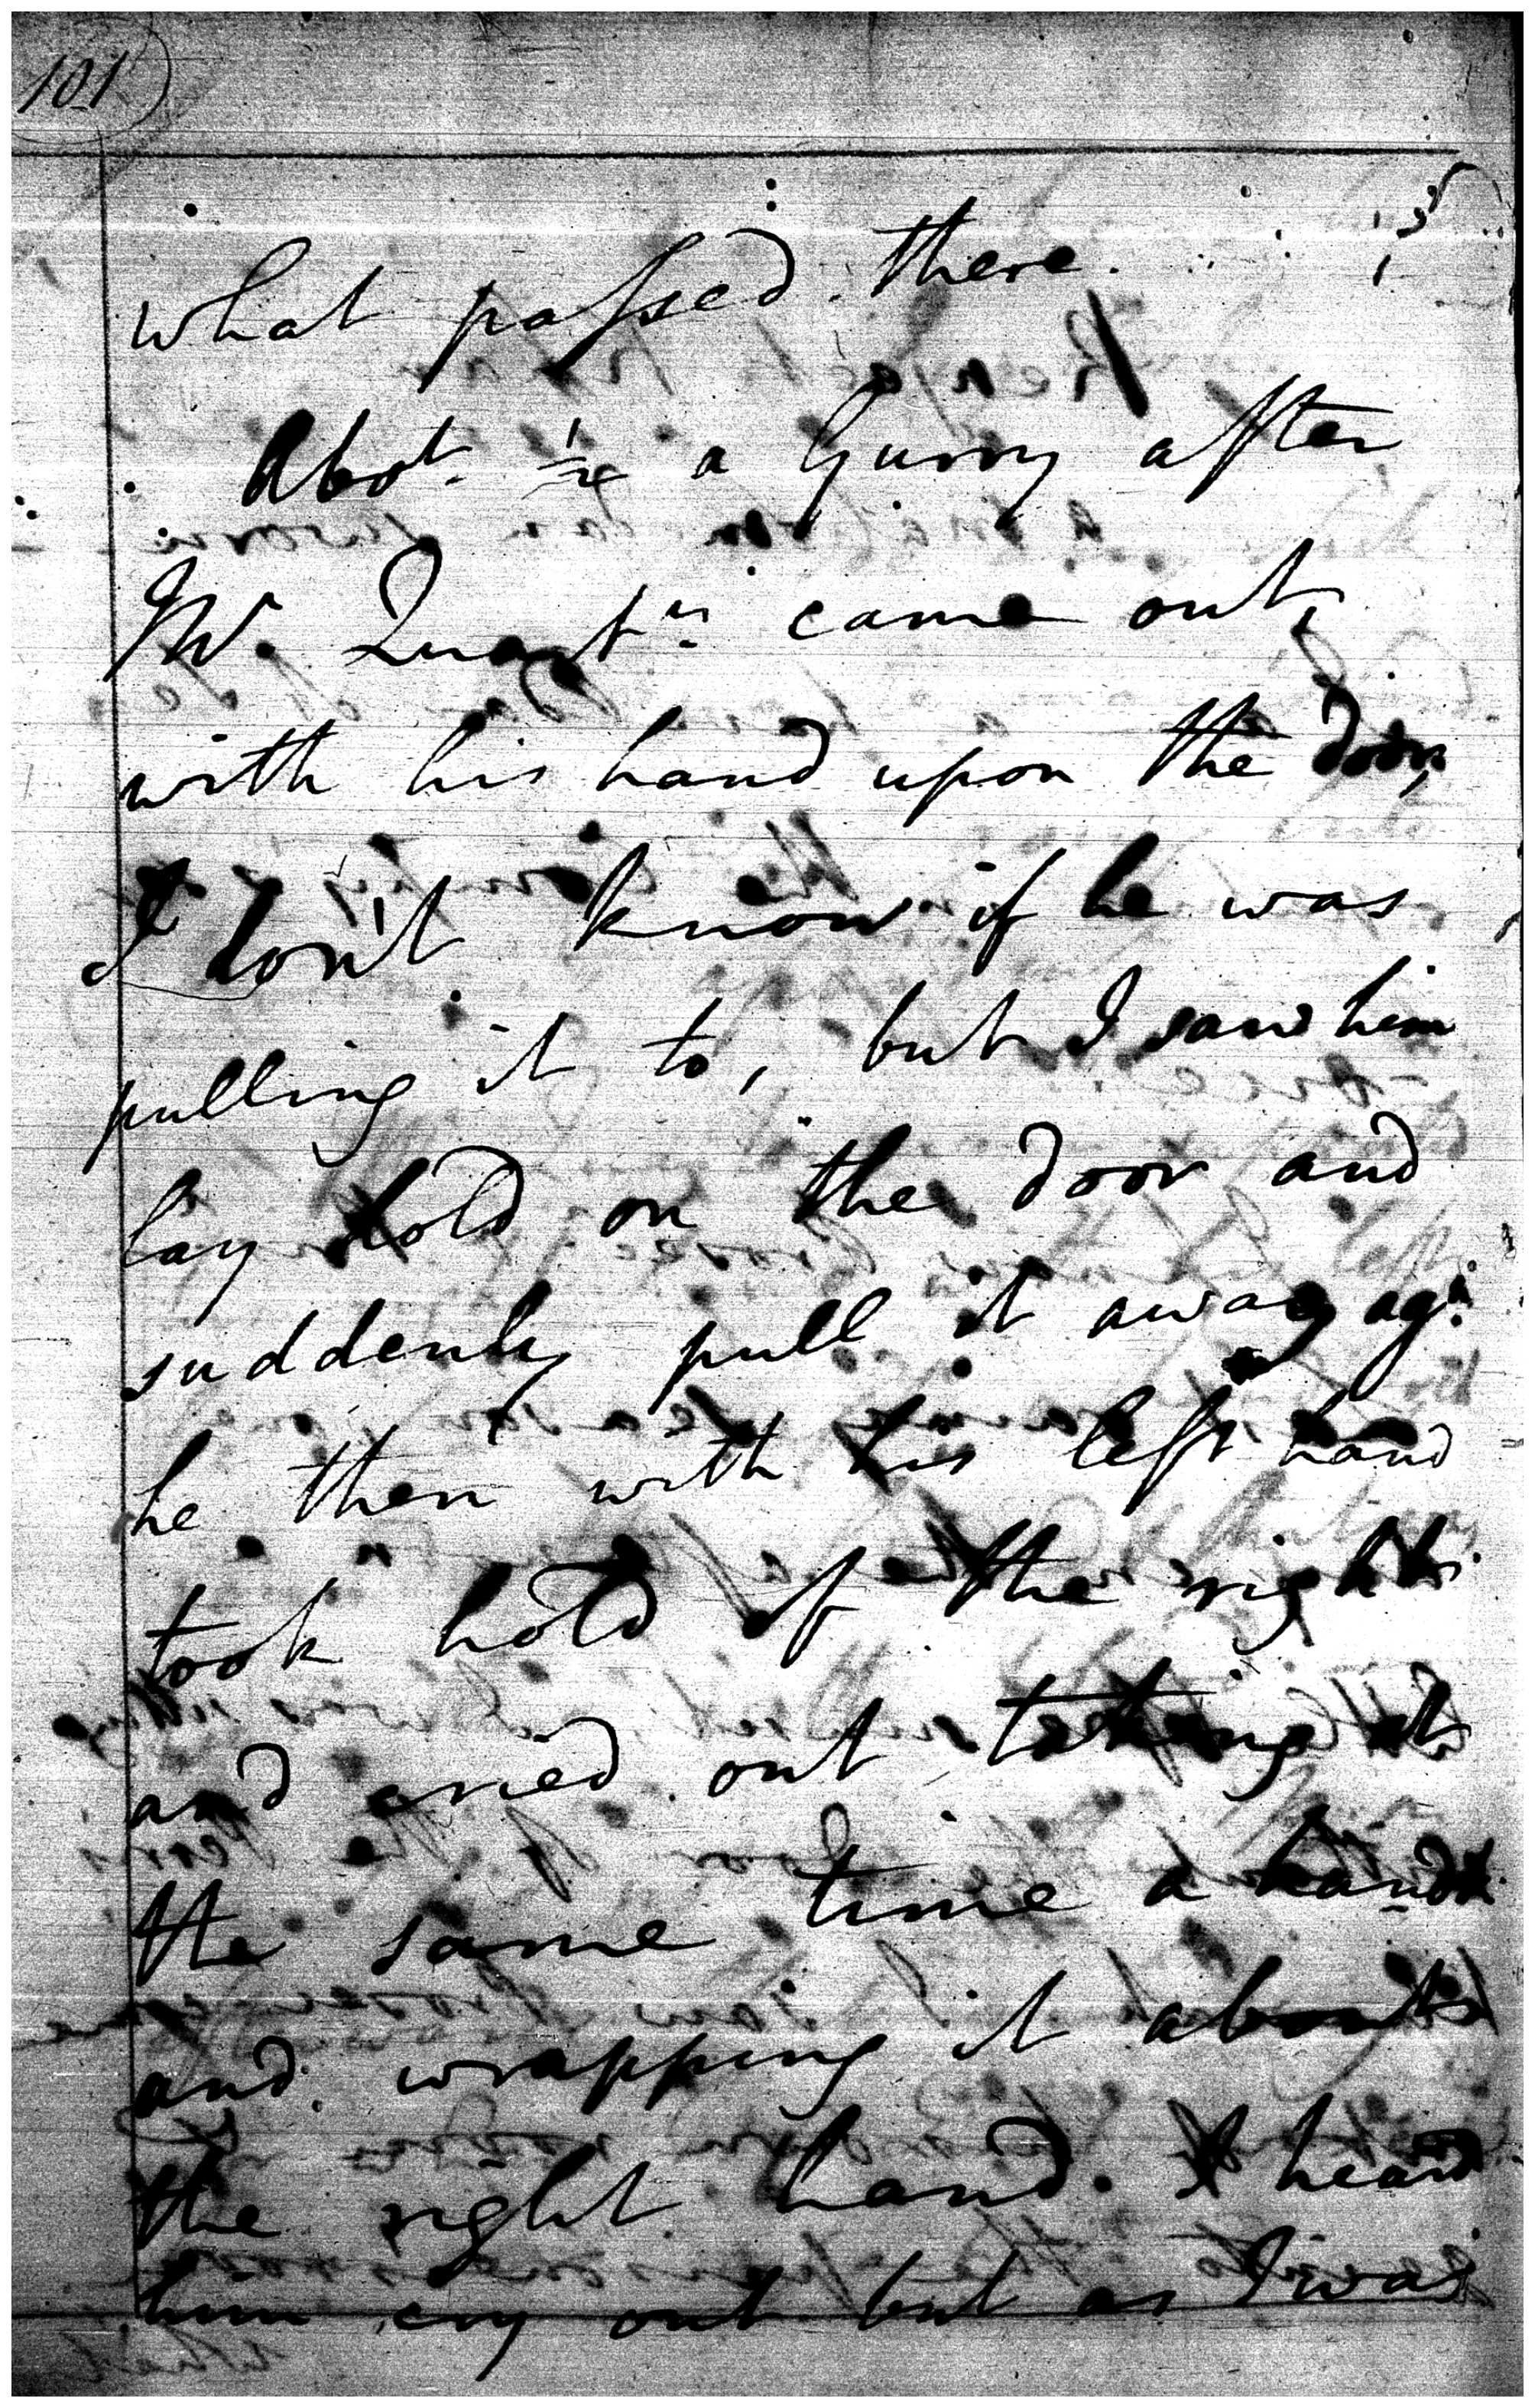 101
what passed there.
Abot. ½ a Gurry after
Mr. Quart.rs came out,
with his hand upon the door,
I don't know if he was
pulling it to, but I saw him
lay hold on the door and
suddenly pull it away ag.n
he then with his left hand
took hold of the right
and cried out taking at
the same time a handk.
and wrapping it about
the right hand. I heard
him cry out but as I was